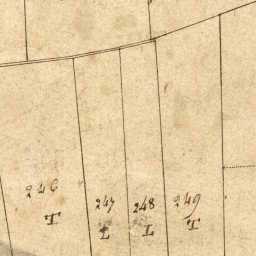 246 247 248 249
T. T. T. T.